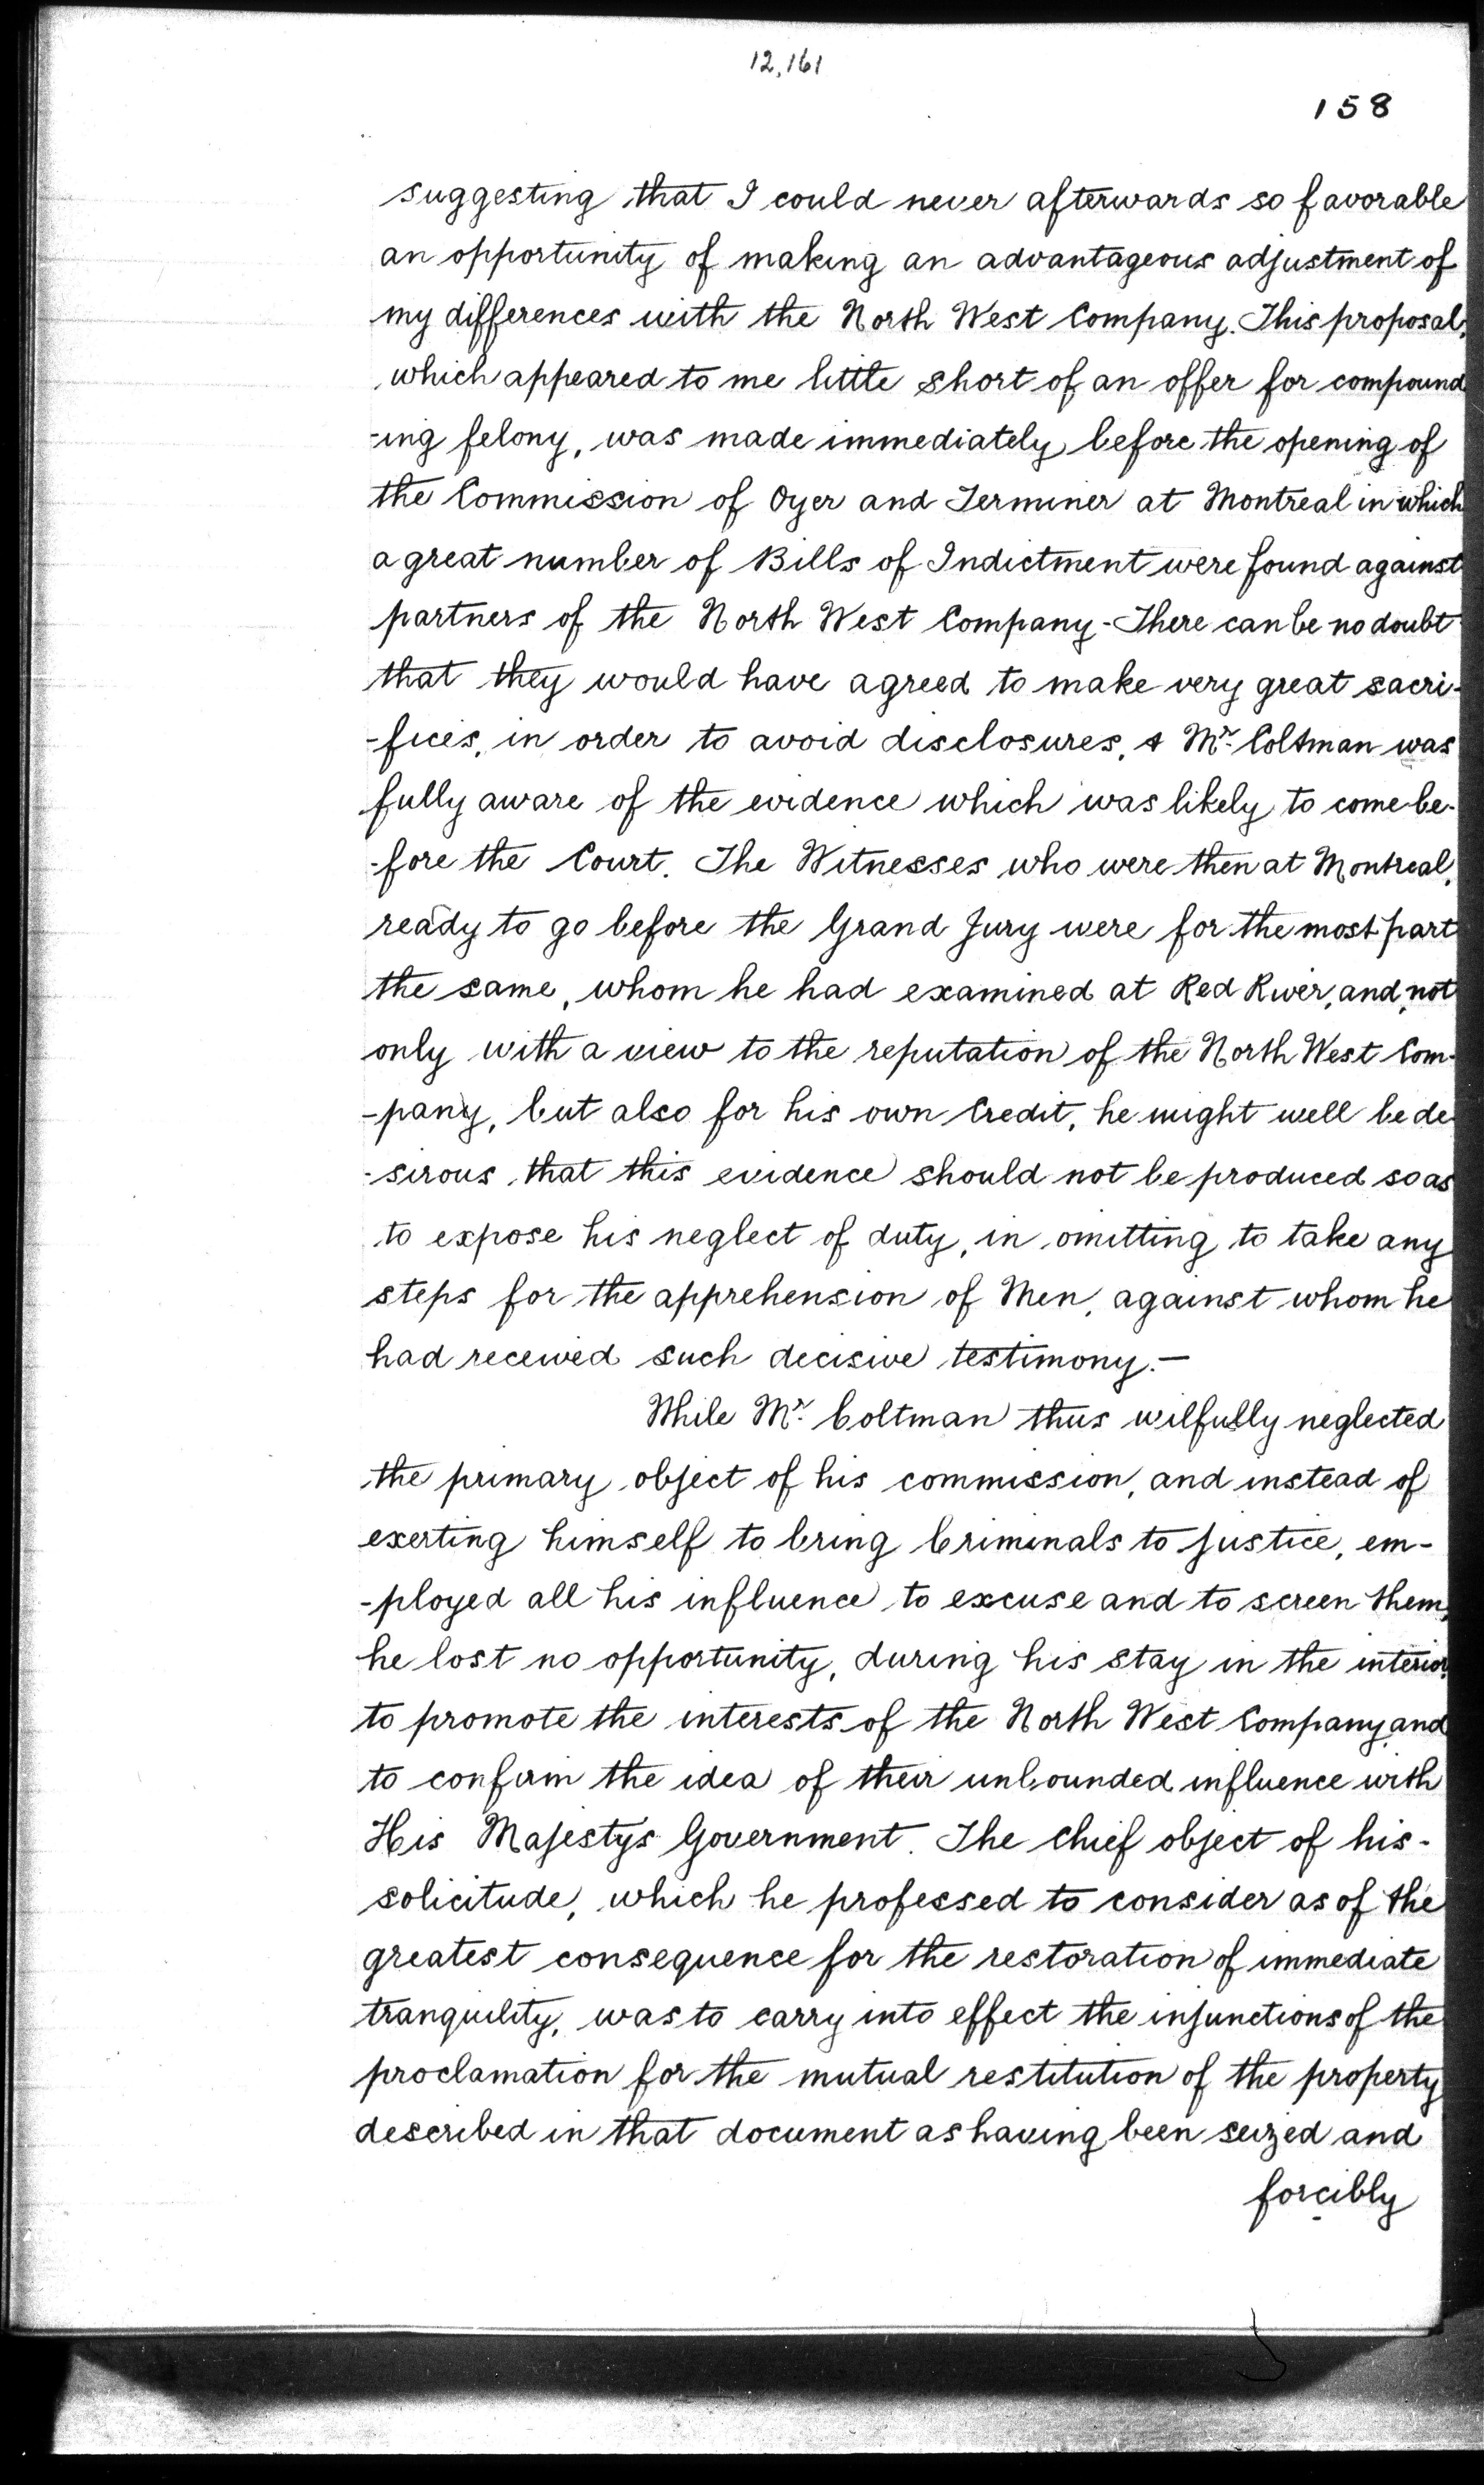 12,161
158
suggesting that I could never afterwards so favorable
an opportunity of making an advantageous adjustment of
my differences with the North West Company. This proposal,
which appeared to me little short of an offer for compound
-ing felony, was made immediately before the opening of
the Commission of Oyer and Terminer at Montreal in which
a great number of Bills of Indictment were found against
partners of the North West Company - There can be no doubt
that they would have agreed to make very great sacri-
-fices, in order to avoid disclosures, & Mr. Coltman was
fully aware of the evidence which was likely to come be-
-fore the Court. The Witnesses who were then at Montreal,
ready to go before the Grand Jury were for the most part
the same, whom he had examined at Red River, and, not
only with a view to the reputation of the North West Com-
-pany, but also for his own Credit, he might well be de-
-sirous that this evidence should not be produced so as
to expose his neglect of duty, in omitting to take any
steps for the apprehension of Men, against whom he
had received such decisive testimony. —
While Mr. Coltman thus wilfully neglected
the primary object of his commission, and instead of
exerting himself to bring Criminals to justice, em-
-ployed all his influence to excuse and to screen them,
he lost no opportunity, during his stay in the interior,
to promote the interests of the North West Company, and
to confirm the idea of their unbounded influence with
His Majestys Government. The Chief object of his-
solicitude, which he professed to consider as of the
greatest consequence for the restoration of immediate
tranquility, was to carry into effect the injunctions of the
proclamation for the mutual restitution of the property
described in that document as having been seized and
forcibly